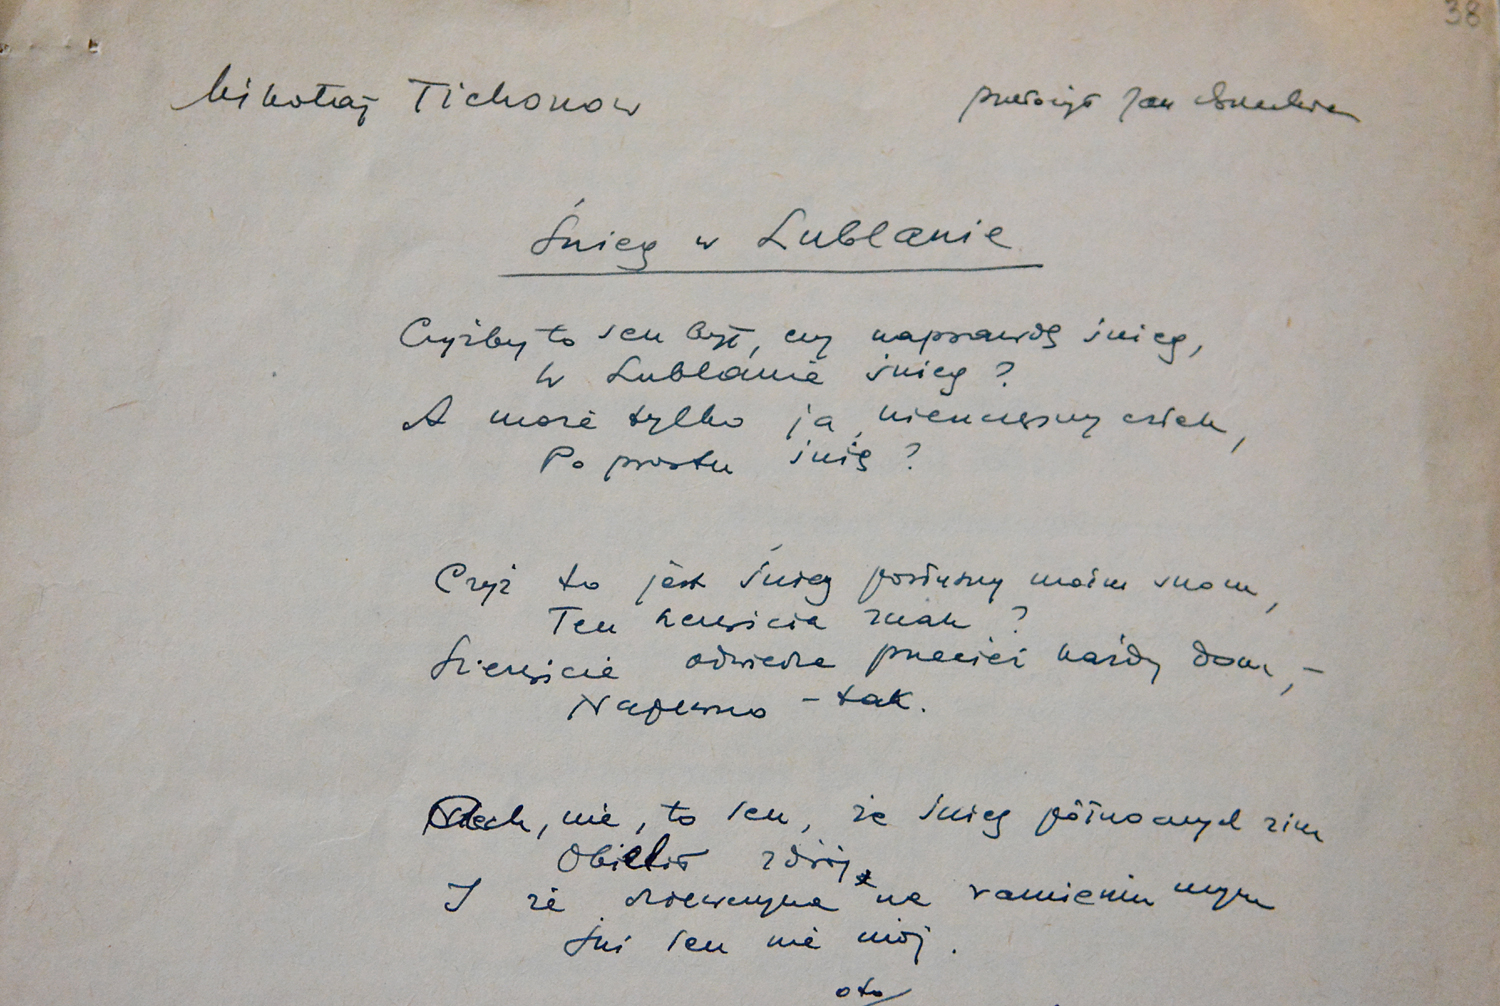 38
Mikołaj Tichonow
przełożył Jan
Śnieg w Lublanie
Czyżby to sen był, czy naprawdę śnieg,
W Lublanie śnieg?
A może tylko ja, nieszczęsny człek,
Po prostu śnię?
Czyż to jest śnieg posłuszny moim snom,
Ten szczęścia znak?
Szczęście odwiedza przecież każdy dom, –
Napewno – tak.
Ach, nie, to sen, że śnieg północnych zim
Obielił zdrój,
I że dziewczyna na ramieniu mym
Śni sen nie mój.
oto